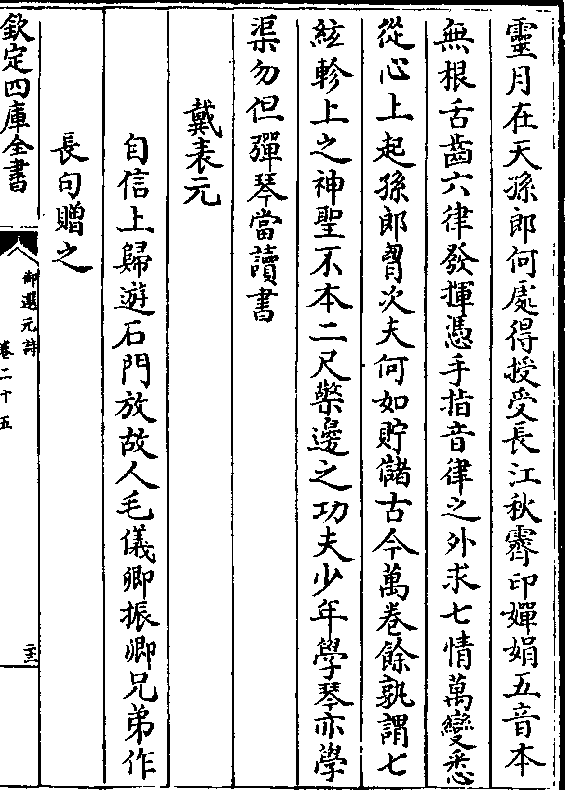 靈月在天孫郎何處得授受長江秋霽印嬋娟五音本
無根舌齒六律發揮憑手指音律之外求七情萬變悉
從心上起孫郎胷次夫何如貯儲古今萬卷餘孰謂七
絃軫上之神聖不本二尺檠邊之功夫少年學琴亦學
渠勿但彈琴當讀書
戴表元
自信上歸遊石門放故人毛儀卿振卿兄弟作
長句贈之
欽定四庫全書
御選元詩
卷二十五